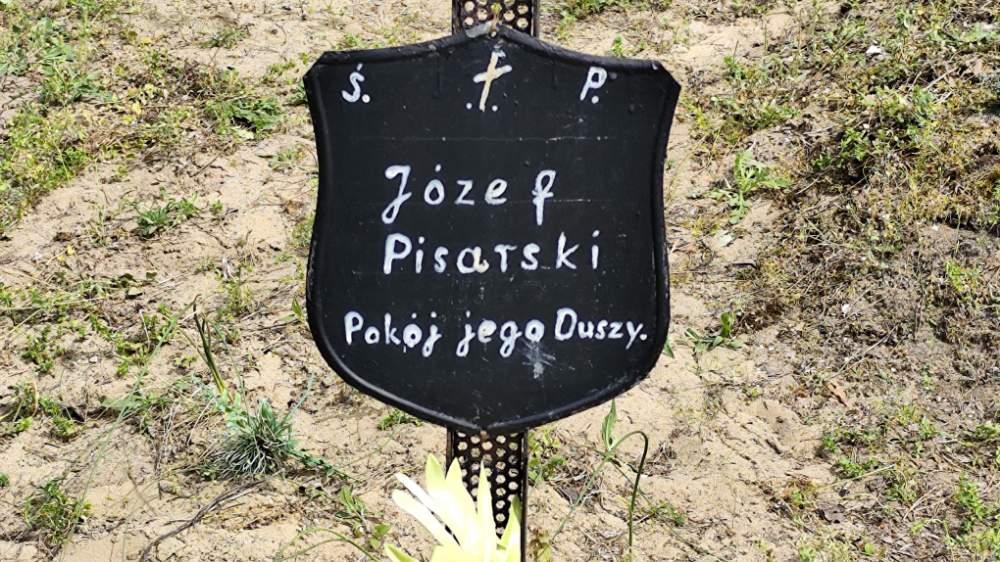 Ś. † P.
Józef
Pisarski
Pokój jego Duszy.